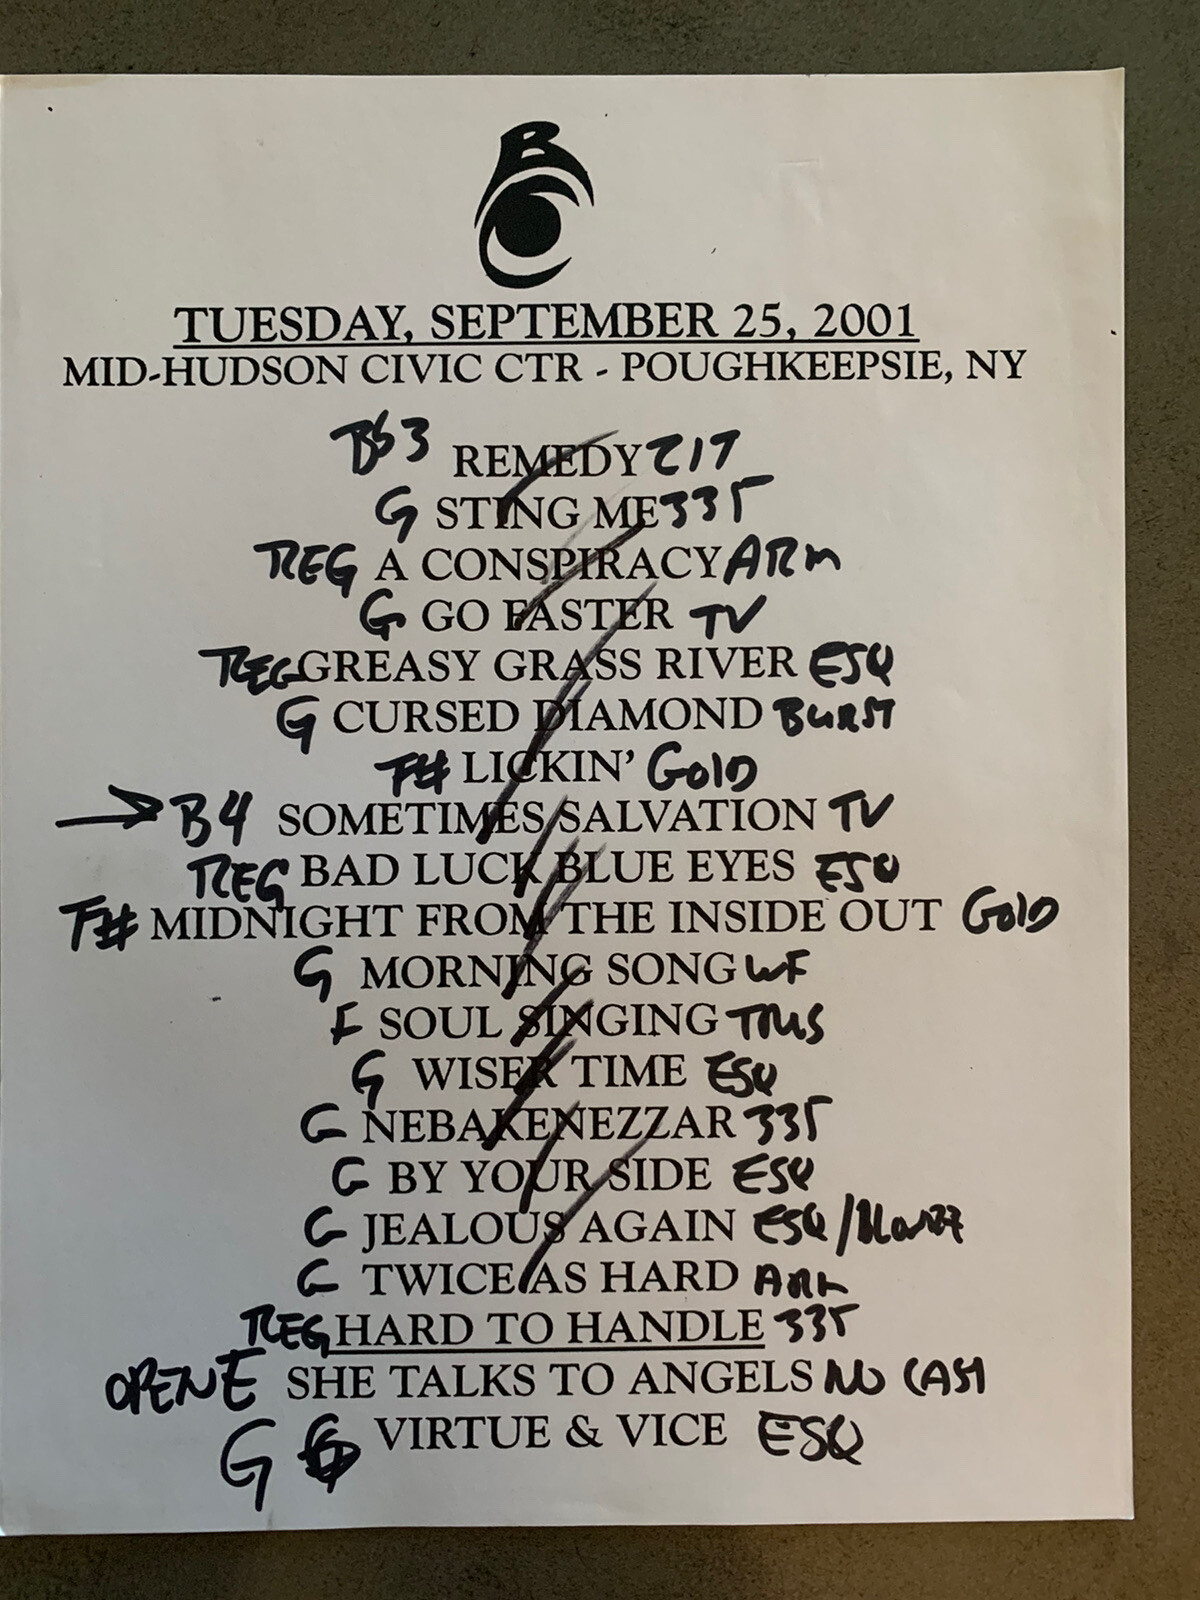 BC
TUESDAY, SEPTEMBER 25, 2001
MID-HUDSON CIVIC CTR - POUGHKEEPSIE, NY
REMEDY
G STING ME 335
REG A CONSPIRACY ARM
G GO FASTER TV
REG GREASY GRASS RIVER ESQ
G CURSED DIAMOND BURST
F# LICKIN' GOLD
→ B4 SOMETIMES SALVATION TV
REG BAD LUCK BLUE EYES ESQ
F# MIDNIGHT FROM THE INSIDE OUT GOLD
G MORNING SONG WF
F SOUL SINGING
G WISER TIME ESQ
G NEBAKENEZZAR 335
G BY YOUR SIDE ESQ
G JEALOUS AGAIN ESQ /
G TWICE AS HARD
REG HARD TO HANDLE 335
OPEN E SHE TALKS TO ANGELS NO
G VIRTUE & VICE ESQ